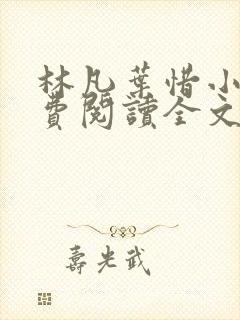 林凡葉惜小
費閱讀全文
壽光武